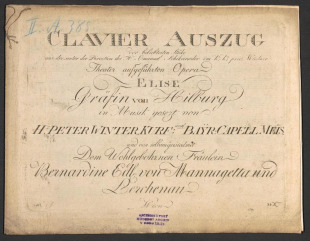 II. A. 385
CLAVIER AUSZUG
der beliebtesten Stücke
aus der unter der Direction des H. Emanuel Schikaneder im K. K. priv. Wiedner
Theater aufgeführten Opera
ELISE
Gräfin von Hilburg
in Musik gesezt von
H. PETER WINTER KURF. BAYR. CAPELL MEIS.
und
Dem Wohlgebohrnen Fräulein
Bernardine Edle von Mannagetta und
Lerchenau
Wien